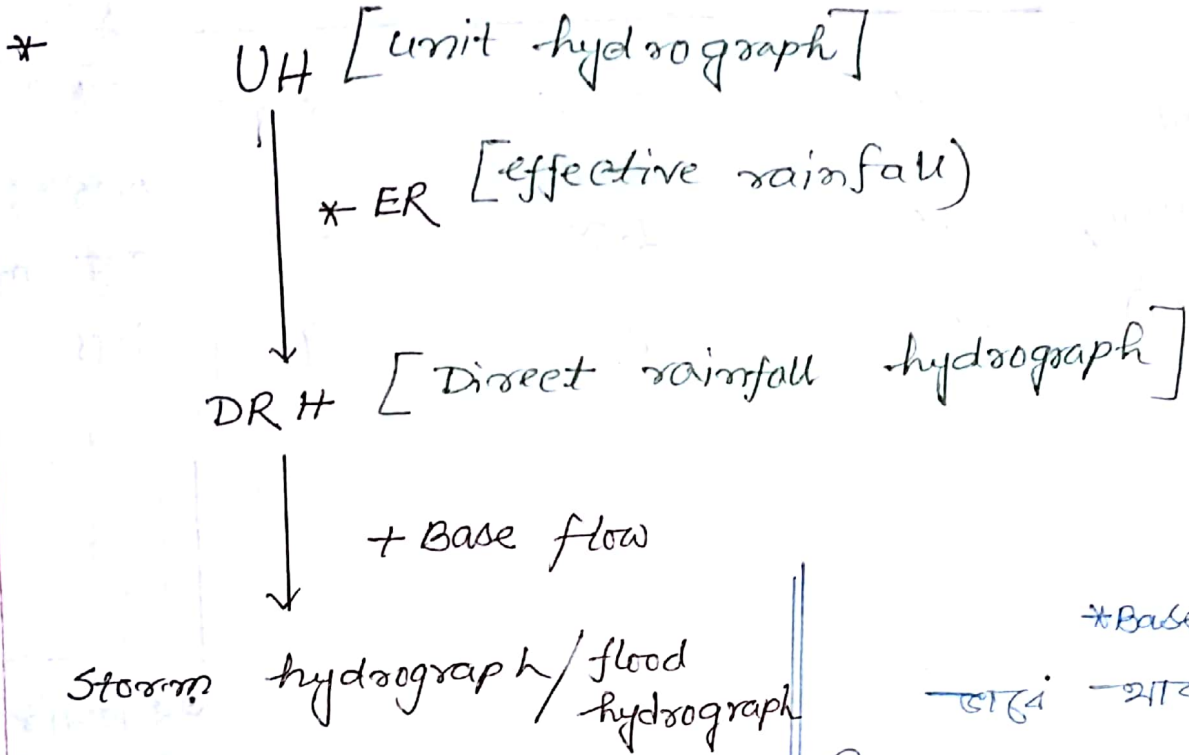 * UH [unit hydrograph]
* ER [effective rainfall)
DRH [Direct rainfall hydrograph]
+ Base flow
Storm hydrograph/flood hydrograph
*Base